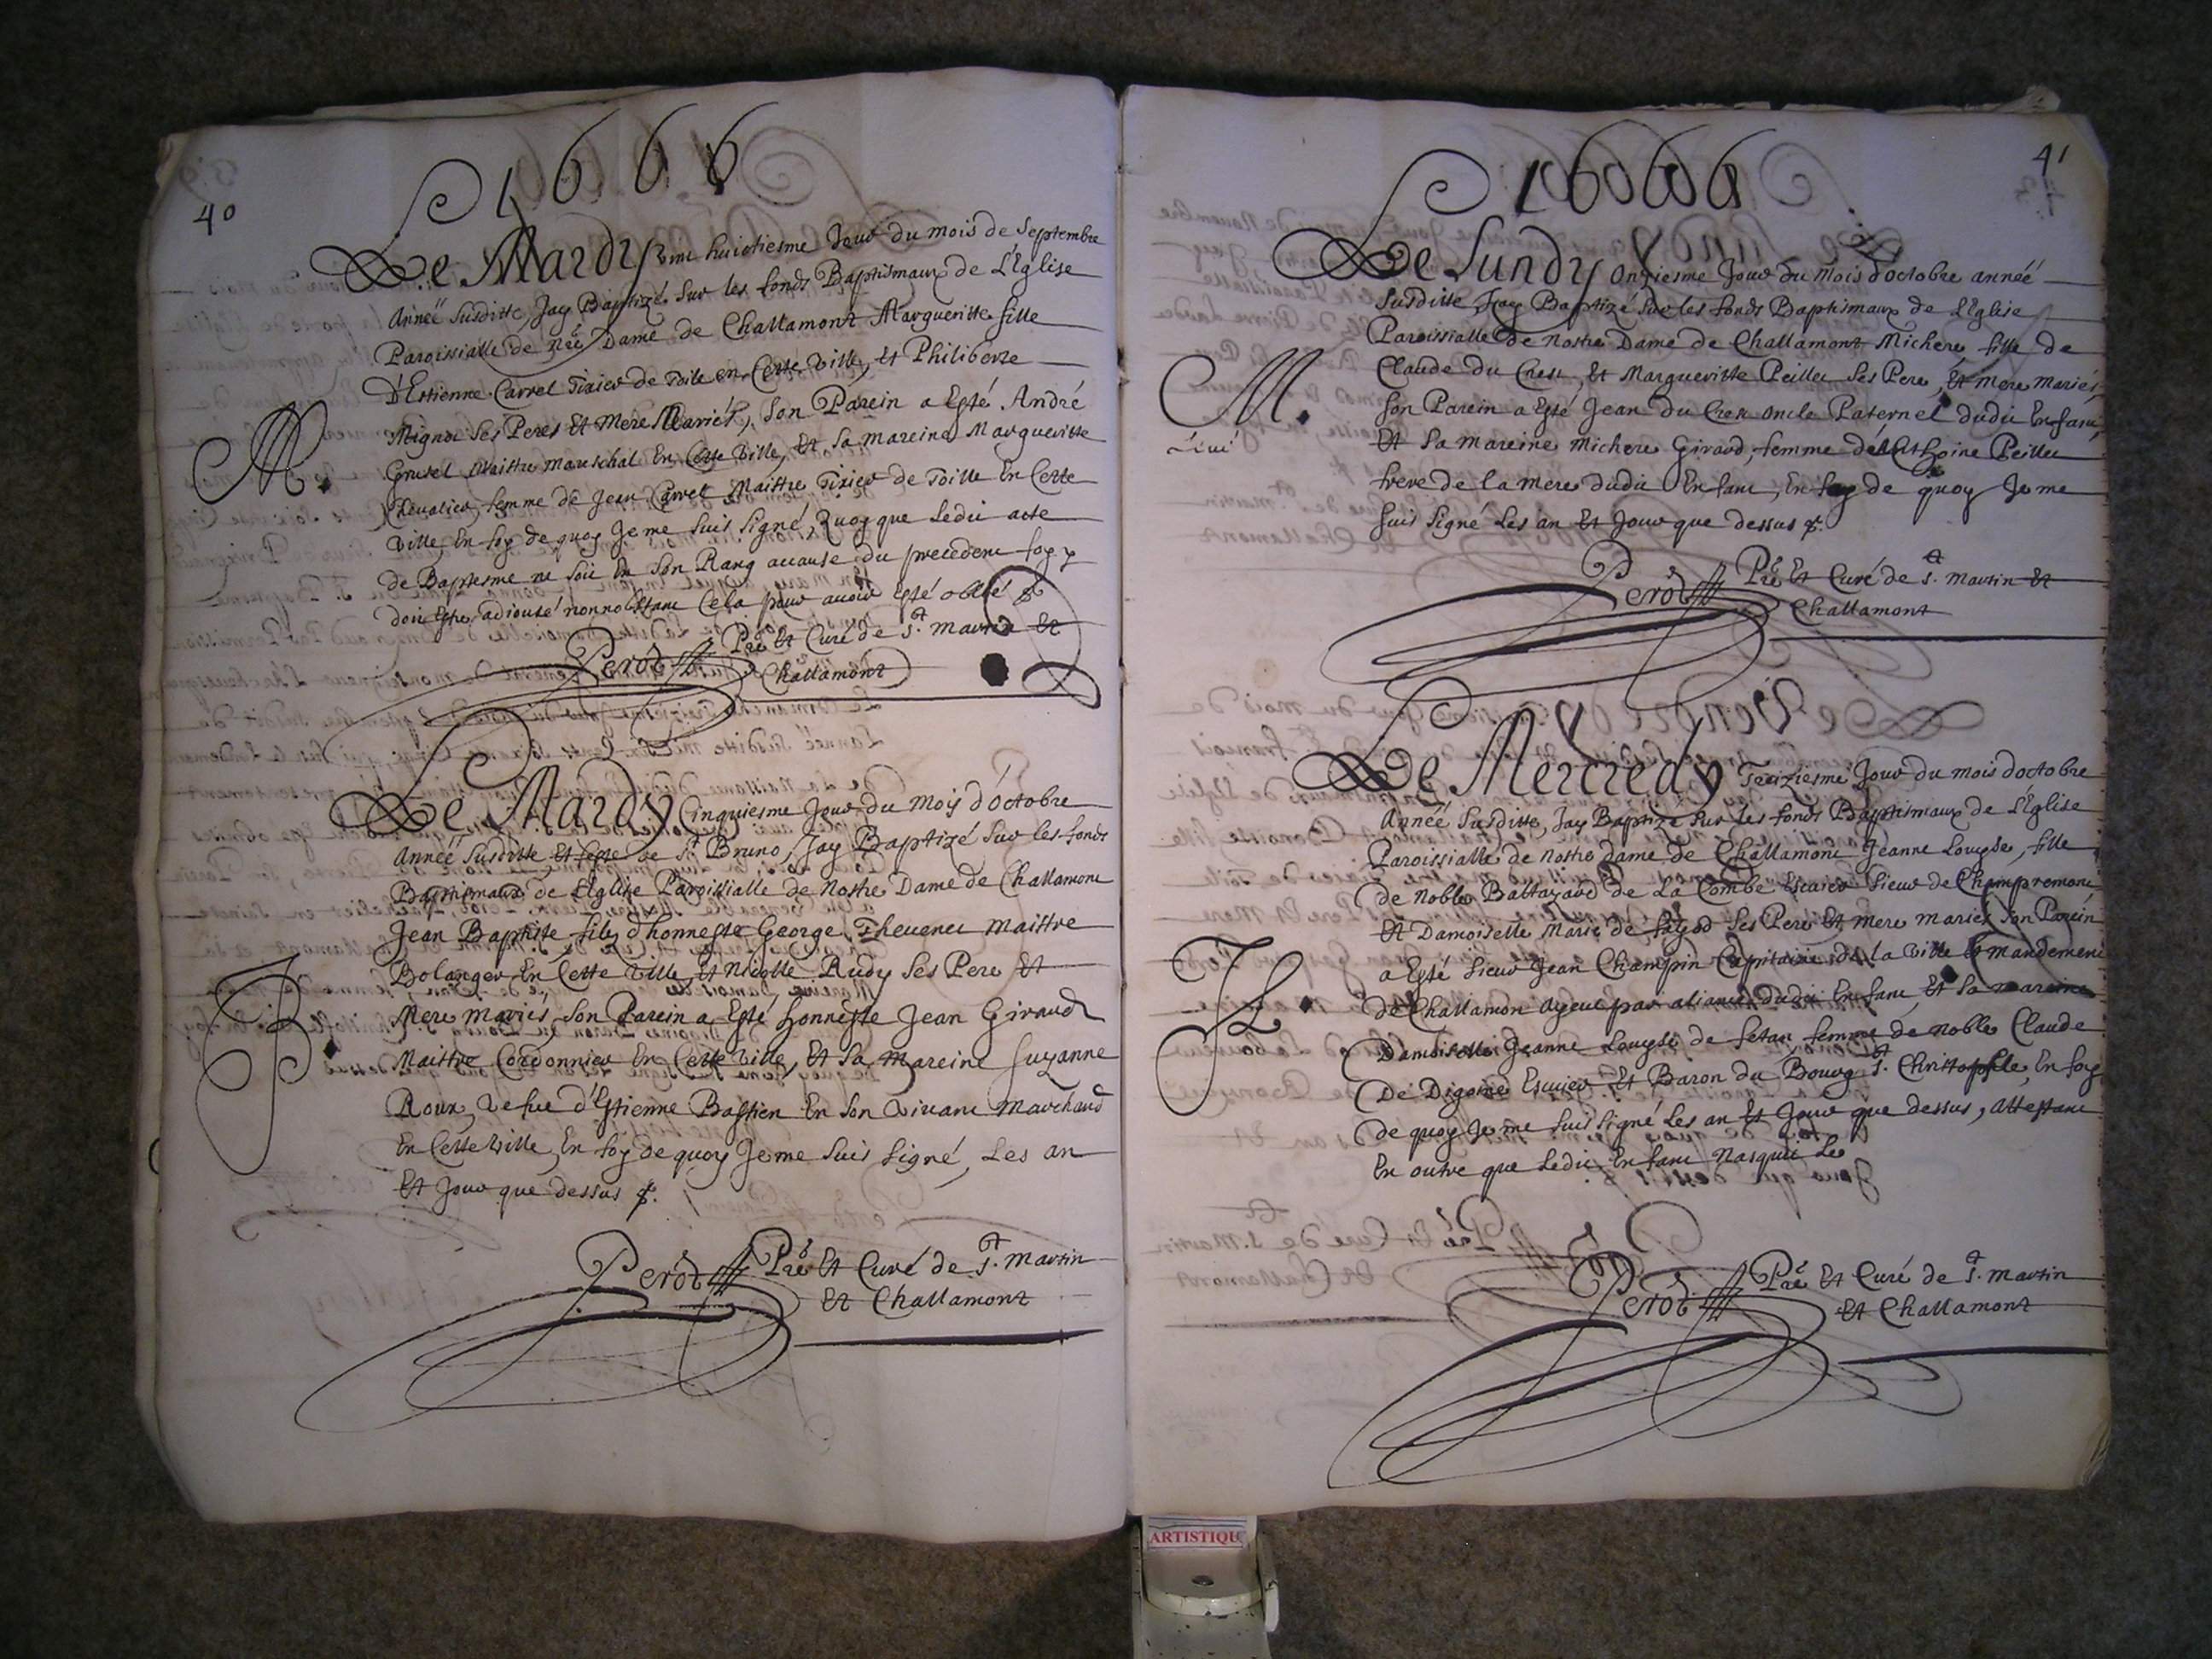 40
1666
Le Mardy vint huictiesme Jour du mois de Septembre
Année Susditte, Jay Baptizé Sur les fonds Baptismaux de L'Eglise
Paroissialle de nrê Dame de Challamont Margueritte fille
D'Estienne Carrel Tixier de Toile en Cette ville, et Philiberte
Mignot Ses Peres Et Mere Mariés, Son Parein a Esté André
Maistre Mareschal En Cette Ville, Et Sa mareine Margueritte
Chevalier, femme de Jean Carrel Maistre Tixier de Toille En Cette
ville, En foy de quoy Je me Suis Signé, Quoy que Ledit acte
de Baptesme ne Soit En Son Rang accause du precedent
doit Estre adiousté nonnobstant Cela pour avoir Esté oblié
Perod Prê Et Curé de St. Martin Et
Challamont
Le Mardy Cinquiesme Jour du Moys d'Octobre
Année Susditte Et feste de St Bruno, Jay Baptizé Sur les fonds
Baptismaux de L'Eglise Paroissialle de Nostre Dame de Challamont
Jean Baptiste filz d'honneste George Thevenet Maistre
Bolanger En Cette Ville, Et Nicolle Rudy Ses Pere Et
Mere Mariés, Son Parein a Esté Honneste Jean Giraud
Maistre Cordonnier En Cette Ville, Et Sa Mareine Suzanne
Roux, Vefue d'Estienne Bastien En Son Vivant Marchand
En Cette Ville, En foy de quoy Je me Suis Signé, Les an
Et Jour que dessus
Perod Prê Et Curé de St. Martin
Et Challamont
41
1666
Le Lundy Onziesme Jour du Mois d'octobre année
Susditte, Jay Baptizé Sur les fonds Baptismaux de L'Eglise
Paroissialle de Nostre Dame de Challamont Michere fille de
Claude du Creu, Et Margueritte Peillet Ses Pere, Et Mere Mariés,
Son Parein a Esté Jean du Creu oncle Paternel dudit Enfant,
Et Sa Mareine Michere Giraud, femme de Anthoine Peillet
frere de la Mere dudit Enfant, En foy de quoy Je me
Suis Signé Les an Et Jour que dessus
Perod Prê Et Curé de St. Martin Et
Challamont
Le Mercredy Treiziesme Jour du mois d'octobre
Année Susditte, Jay Baptizé Sur les fonds Baptismaux de L'Eglise
Paroissialle de Nostre Dame de Challamont Jeanne Louyse, fille
de Noble Baltazard de La Combe Escuier Sieur de Champremont
Et Damoiselle Marie de Ses Pere Et Mere mariés Son Parein
a Esté Sieur Jean Champin Capitaine de la Ville Et mandement
de Challamon ayeul par aliance dudit Enfant, Et Sa mareine
Damoiselle Jeanne Louyse de femme de noble Claude
De Digoine Escuier Et Baron du Bourg St. Christophle, En foy
de quoy Je me Suis Signé Les an Et Jour que dessus, Attestant
En outre que Ledit Enfant Nasquit Le
Perod Prê Et Curé de St. Martin
Et Challamont
ARTISTIQU